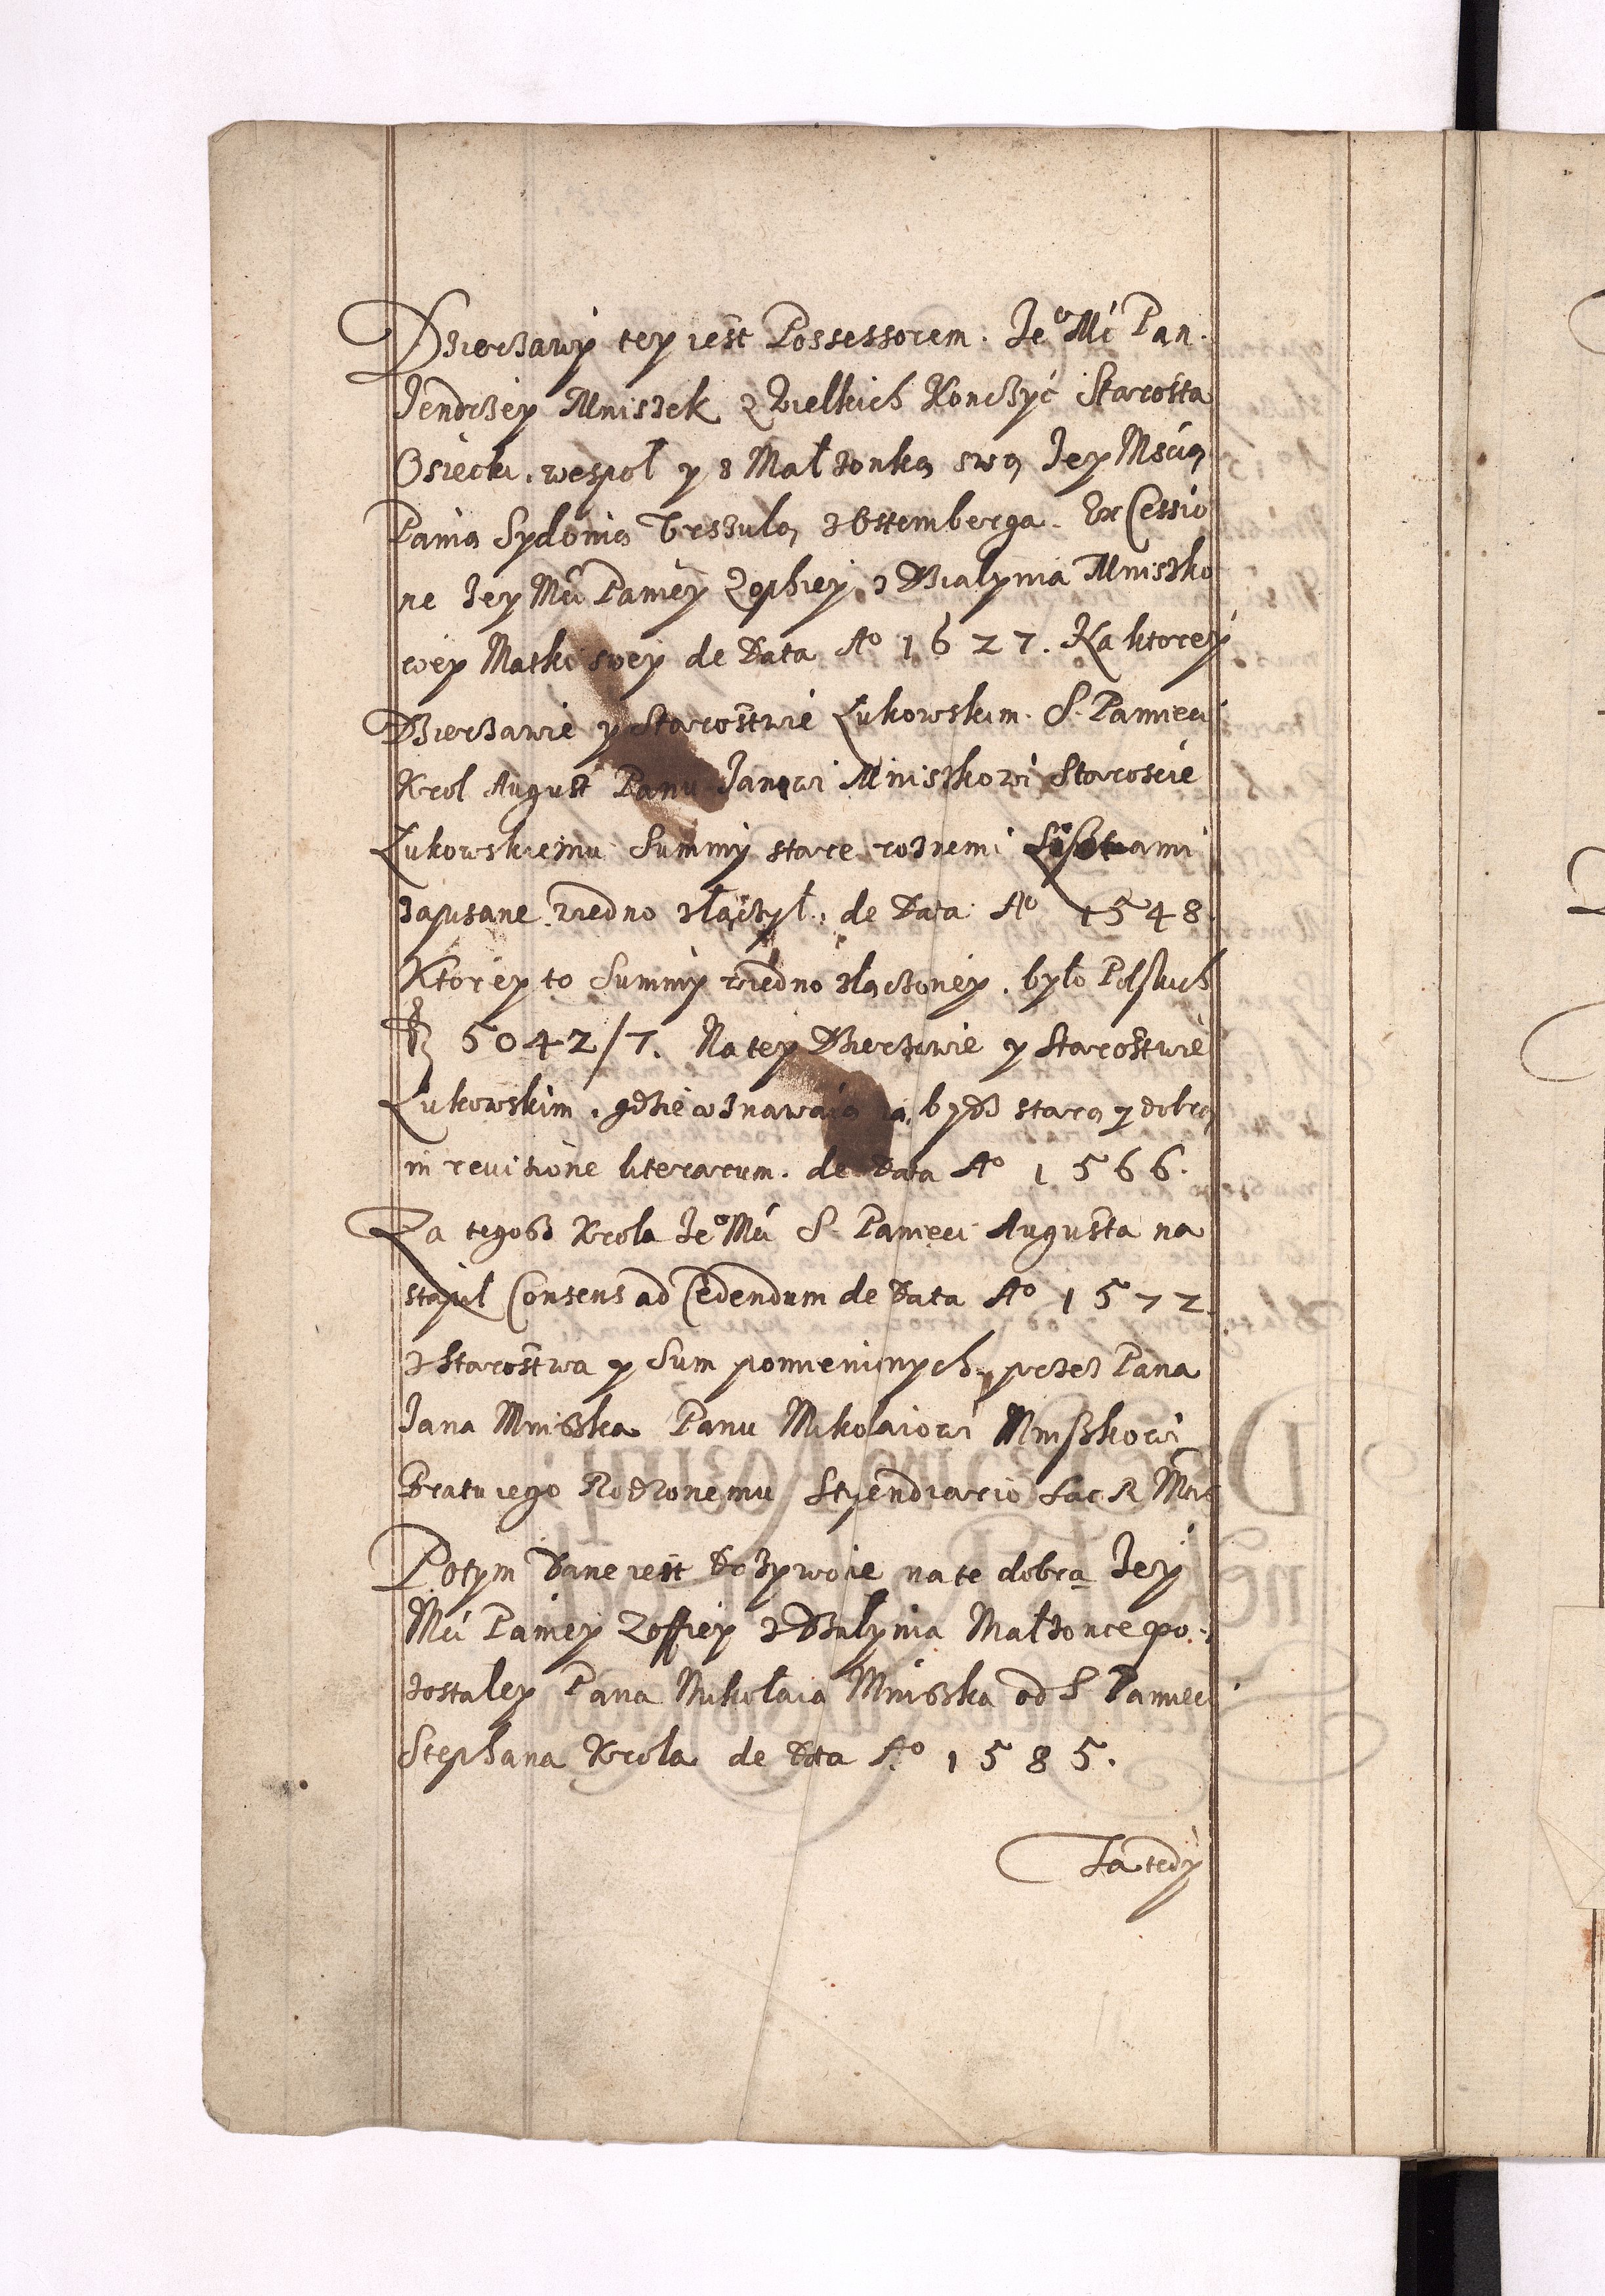 Dzierzawy tey iest Possessorem. Je⁰ Mć Pan.
Jendrzey Mniszek z Wielkich Konczyć Starosta
Osiecki, wespoł y z Małżonką swą Jey Mścią
Panią Sydonią Vrszulą z Ostemberga. Ex Cessio
ne Jey Mći Paniey Zophiey z Dzialynia Mniszko
wey Matki swey de Data A⁰ 1627. Na ktorey
Dzierzawie y Starostwie Łukowskim. S. Pamieci
Krol August Panu Janowi Mniszkowi Staroscie
Łukowskiemu Summy stare roznemi Listami
zapisane wiedno złączył, de Data A⁰ 1548.
Ktorey to Summy wiedno złączoney, było Polskich
5042/7. Na tey Dzierzawie y Starostwie
Łukowskim, gdzie wznawaią ią bydz starą y dobrą
in reuisione literarum. de Data A⁰ 1566.
Za tegosz Krola Je⁰ Mći S. Pamieci Augusta na
stąpil Consens ad Cedendum de Data A⁰ 1572
z Starostwa y Sum pomienionych, przez Pana
Jana Mniszka Panu Mikołaiowi Mniszkowi
Bratu iego Rodzonemu Stipendiario Sac R Mtis
Potym Dane iest Dożywocie na te dobra Jey
Mći Paniey Zoffiey z Dzialynia Małżonce po
zostałey Pana Mikołaia Mniszka od S Pamieci
Stephana Krola de Data A⁰ 1585.
Ta tedy